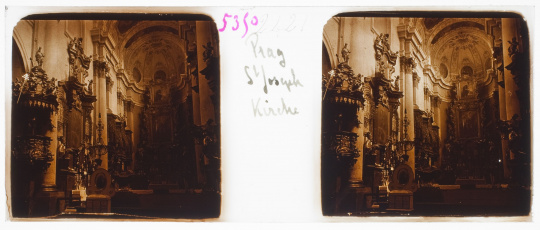 5350
Prag
St Joseph
Kirche